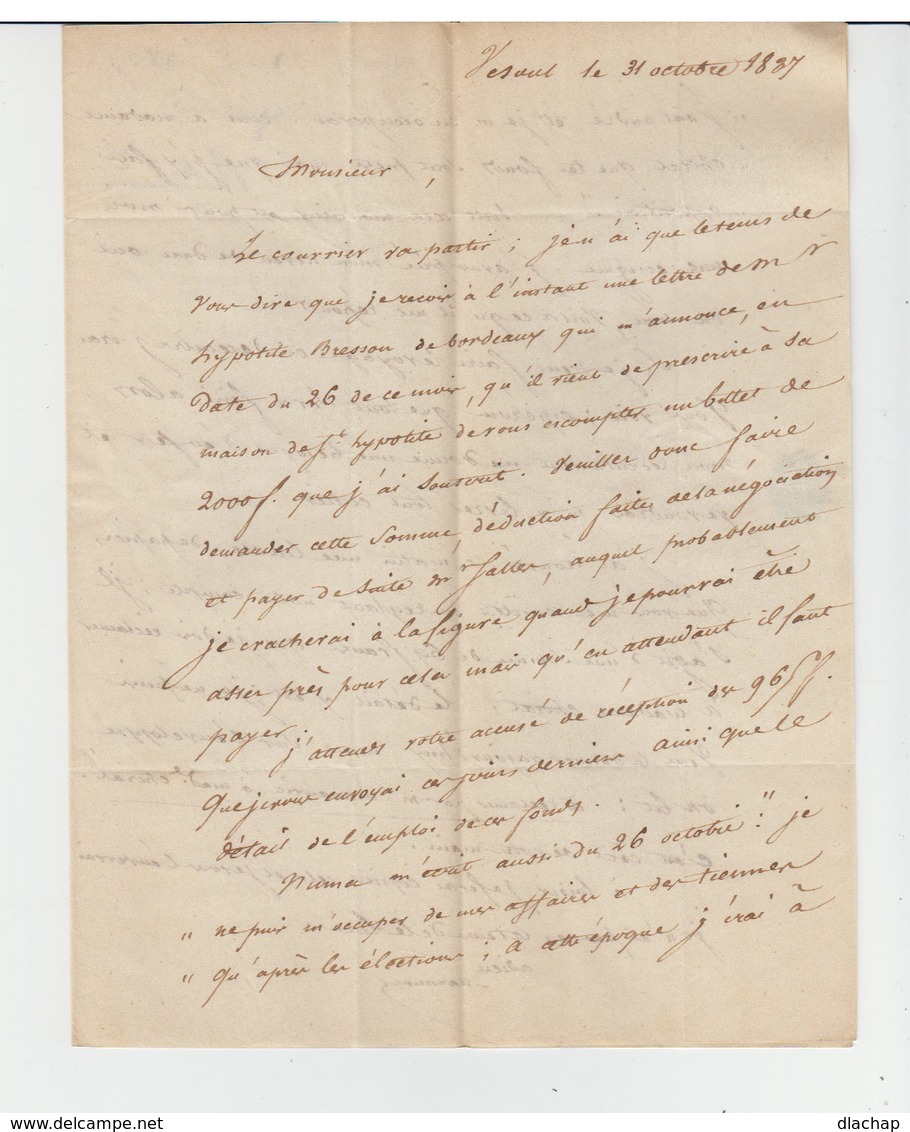 Vesoul le 31 octobre 1837
Monsieur,
Le courrier va partir ; je n'ai que le tems de
vous dire que je recois à l'instant une lettre de m r
hypolite Bresson de bordeaux qui m'annonce, en
Date du 26 de ce mois, qu'il vient de prescrire à sa
maison de St. hypolite de vous escompter un billet de
2000 f. que j'ai souscrit. Veuiller donc faire
demander cette somme, déduction faite de la négociation
et payer de suite mr. faller, auquel probablement
je cracherai à la figure quand je pourrai être
asser près pour cela mais qu'en attendant il faut
payer. j'attends votre accusé de réception des 965 f.
Que je vous envoyai ces jours derniers ainsi que le
détail de l'emploi de ces fonds.
Numa m'écrit aussi du 26 octobre : " je
" ne puis m'occuper de mes affaires et des tiennes
" qu'après les élections ; à cette époque j'irai à
dlachap